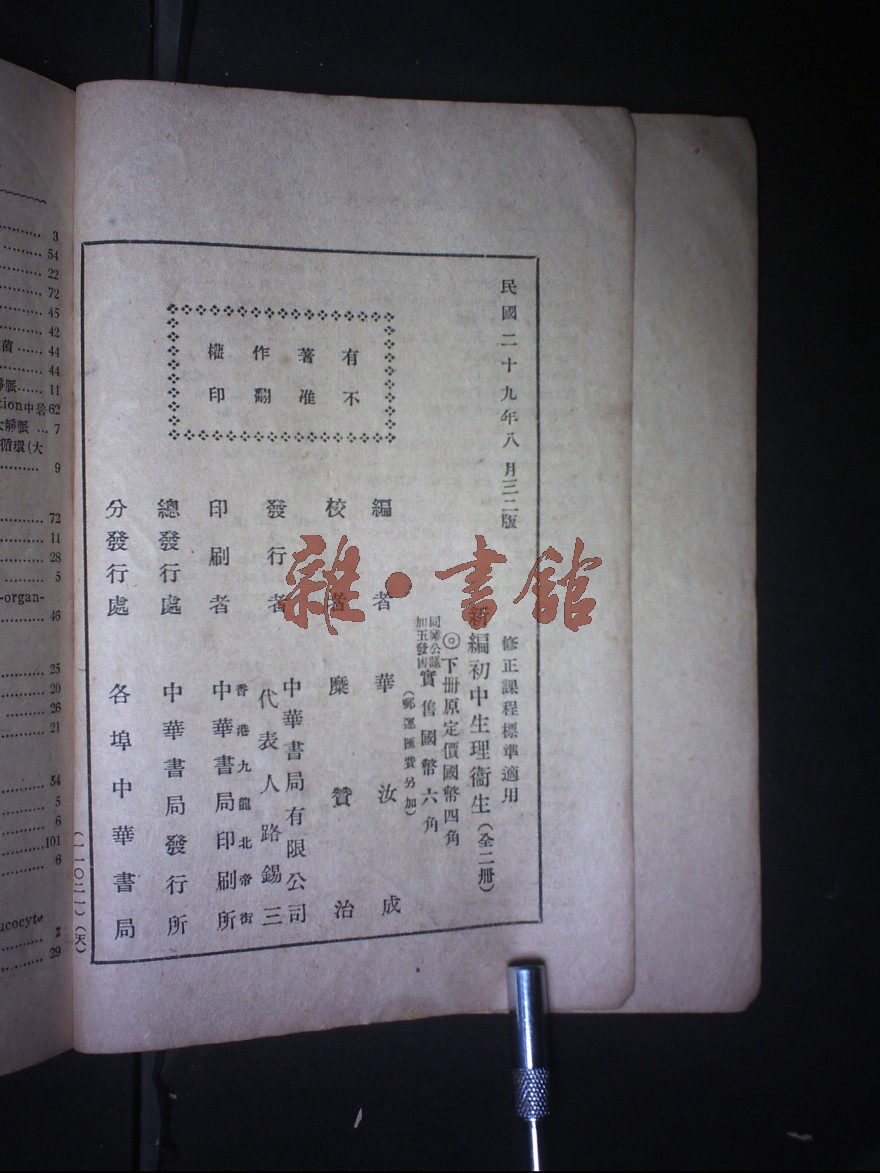 民國二十九年八月三二版
有著作權
不准翻印
修正課程標準適用
新編初中生理衞生(全二冊)
◎下冊原定價國幣四角
同業公議
加五發售
實售國幣六角
(郵運匯費另加)
編者 華汝成
校者 糜贊治
發行者 中華書局有限公司
代表人路錫三
印刷者 香港九龍北帝街
中華書局印刷所
總發行處 中華書局發行所
分發行處 各埠中華書局
(一一〇二一)(天)
雜·書館
3
54
22
72
45
42
菌 44
44
靜脈 11
tion中 62
大靜脈 7
循環(大
9
72
11
28
5
-organ-
46
25
20
26
21
54
5
6
101
6
ucocyte
29